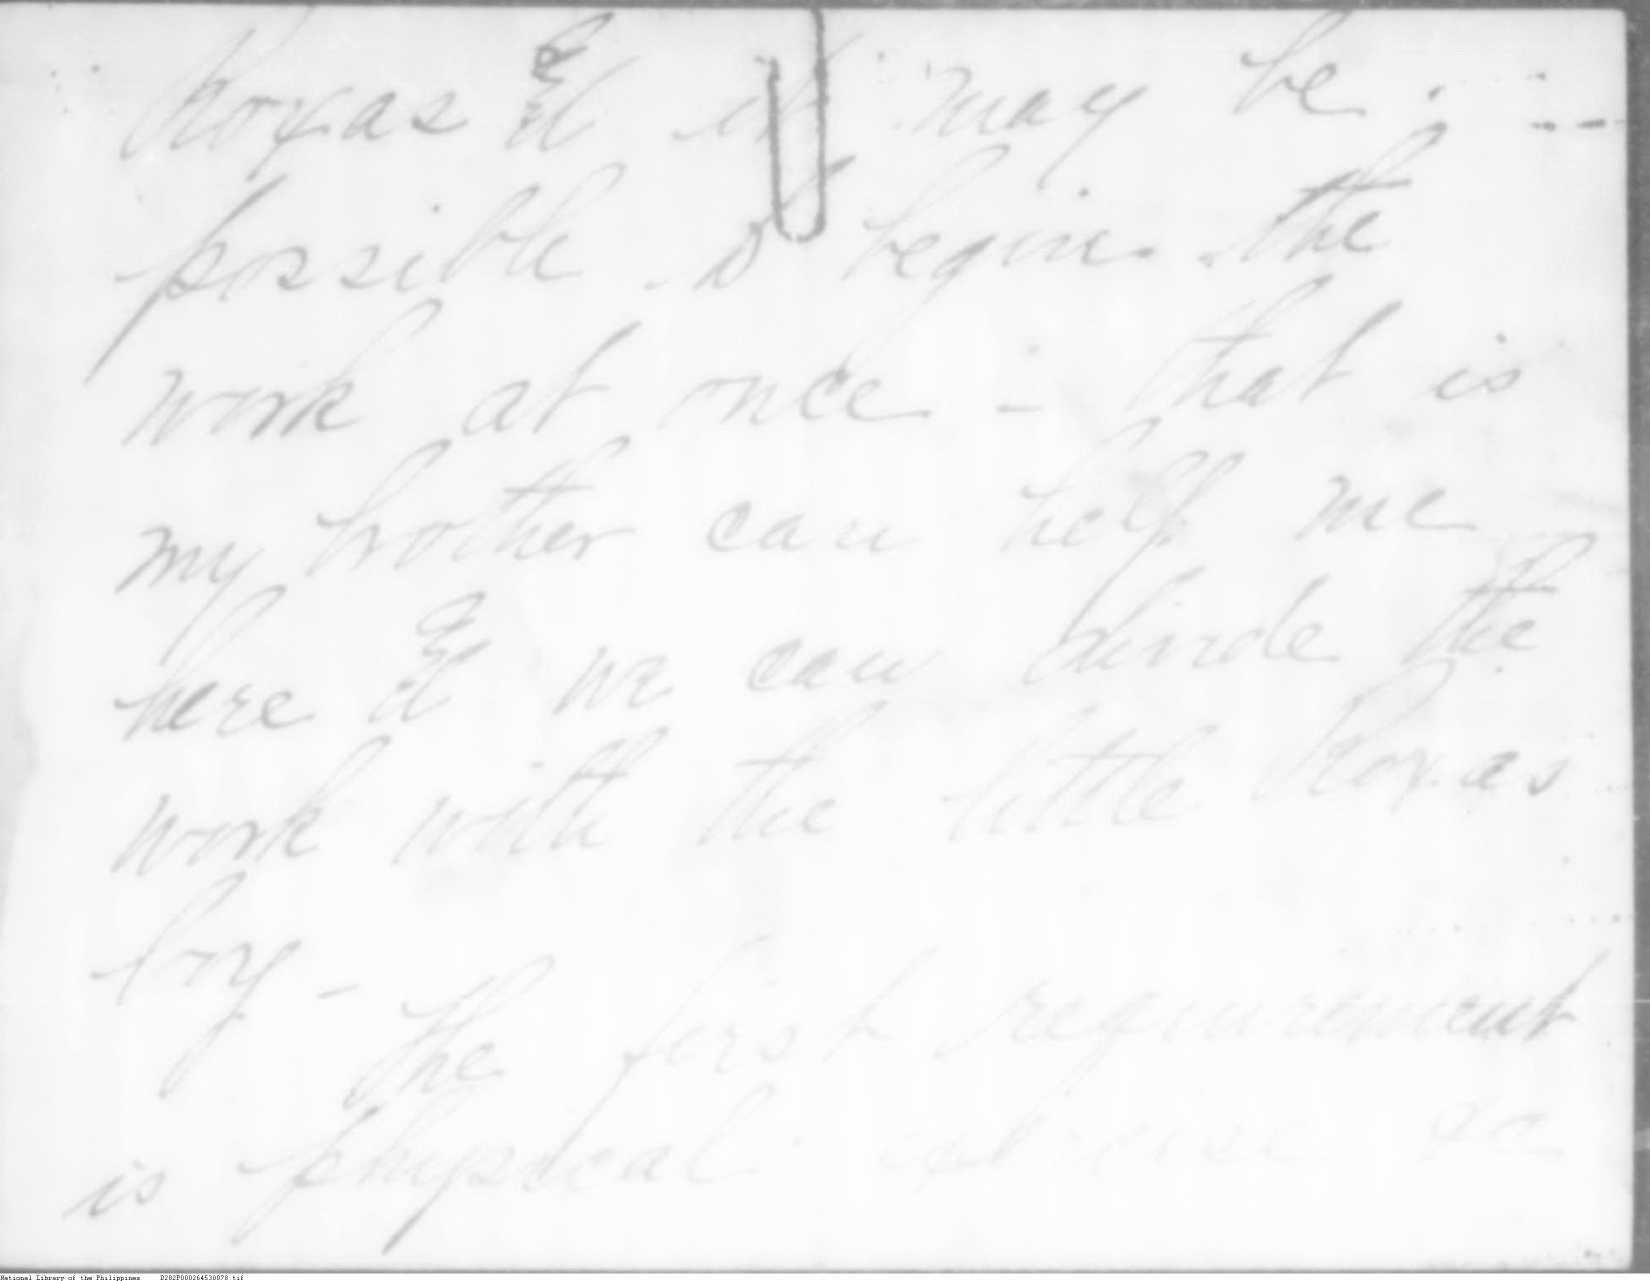 Roxas & it may be
possible to begin the
work at once - that is
my brother can help me
here & we can divide the
work with the little Roxas
boy -
The first requirement
is physical exercise
National Library of the Philippines D282P000264530078.tif